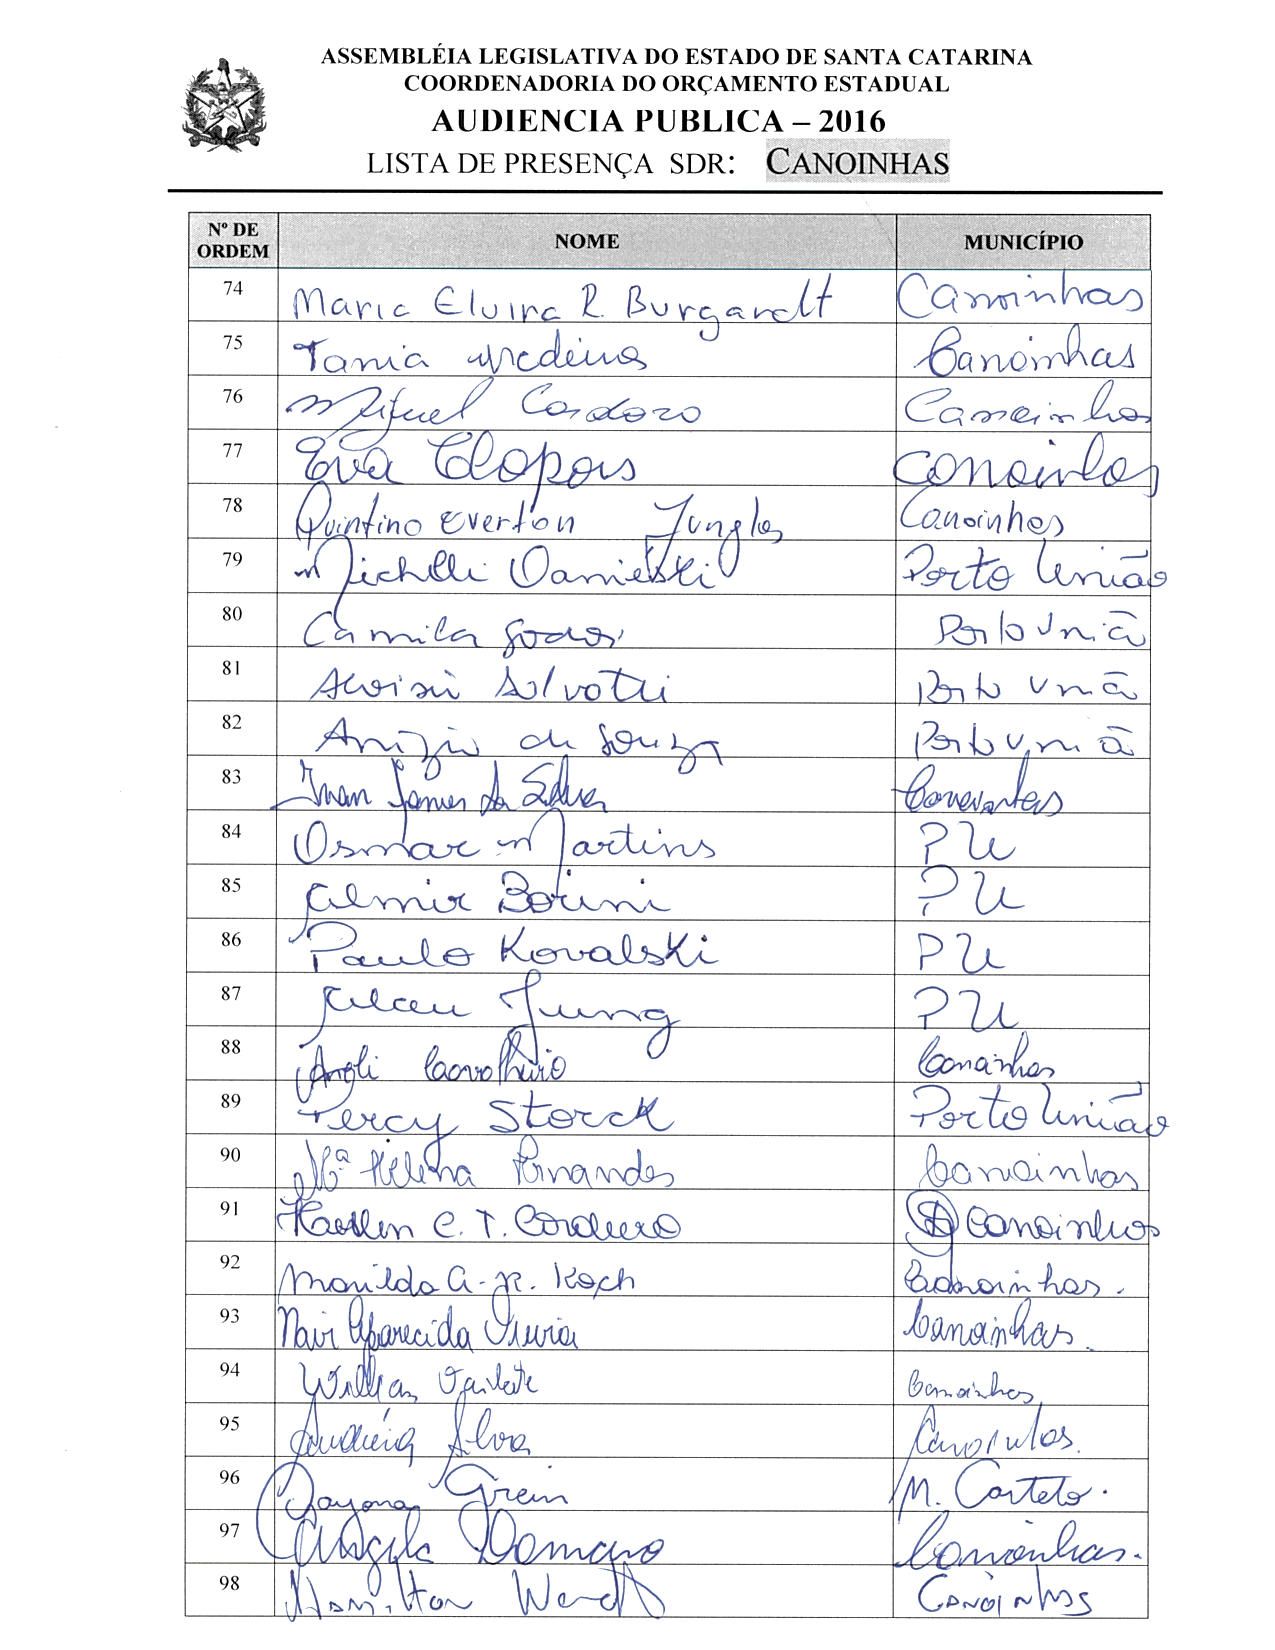 ASSEMBLÉIA LEGISLATIVA DO ESTADO DE SANTA CATARINA
COORDENADORIA DO ORÇAMENTO ESTADUAL
AUDIENCIA PUBLICA – 2016
LISTA DE PRESENÇA SDR: CANOINHAS
Nº DE ORDEM NOME MUNICÍPIO
74 Maria Elvira R. Burgardt Canoinhas
75 Tania Medeiros Canoinhas
76 Miguel Cardozo Canoinhas
77 Eva Canoinhas
78 Quintino Everton Jungles Canoinhas
79 Michelli Danielski Porto União
80 Camila Porto União
81 Porto União
82 Anizio de Souza Porto União
83 da Silva
84 Osmar Martins PU
85 PU
86 Paulo Kovalski PU
87 Jung PU
88 Canoinhas
89 Percy Storck Porto União
90 Mª Helena Fernandes Canoinhas
91 C. T. Cordeiro Canoinhas
92 Marilda A. R. Koch Canoinhas.
93 Nair Aparecida Canoinhas.
94 Willian Canoinhas
95 Silva Canoinhas.
96 Dayana Grein M. Castelo.
97 Angela Canoinhas.
98 Hamilton Wendt Canoinhas